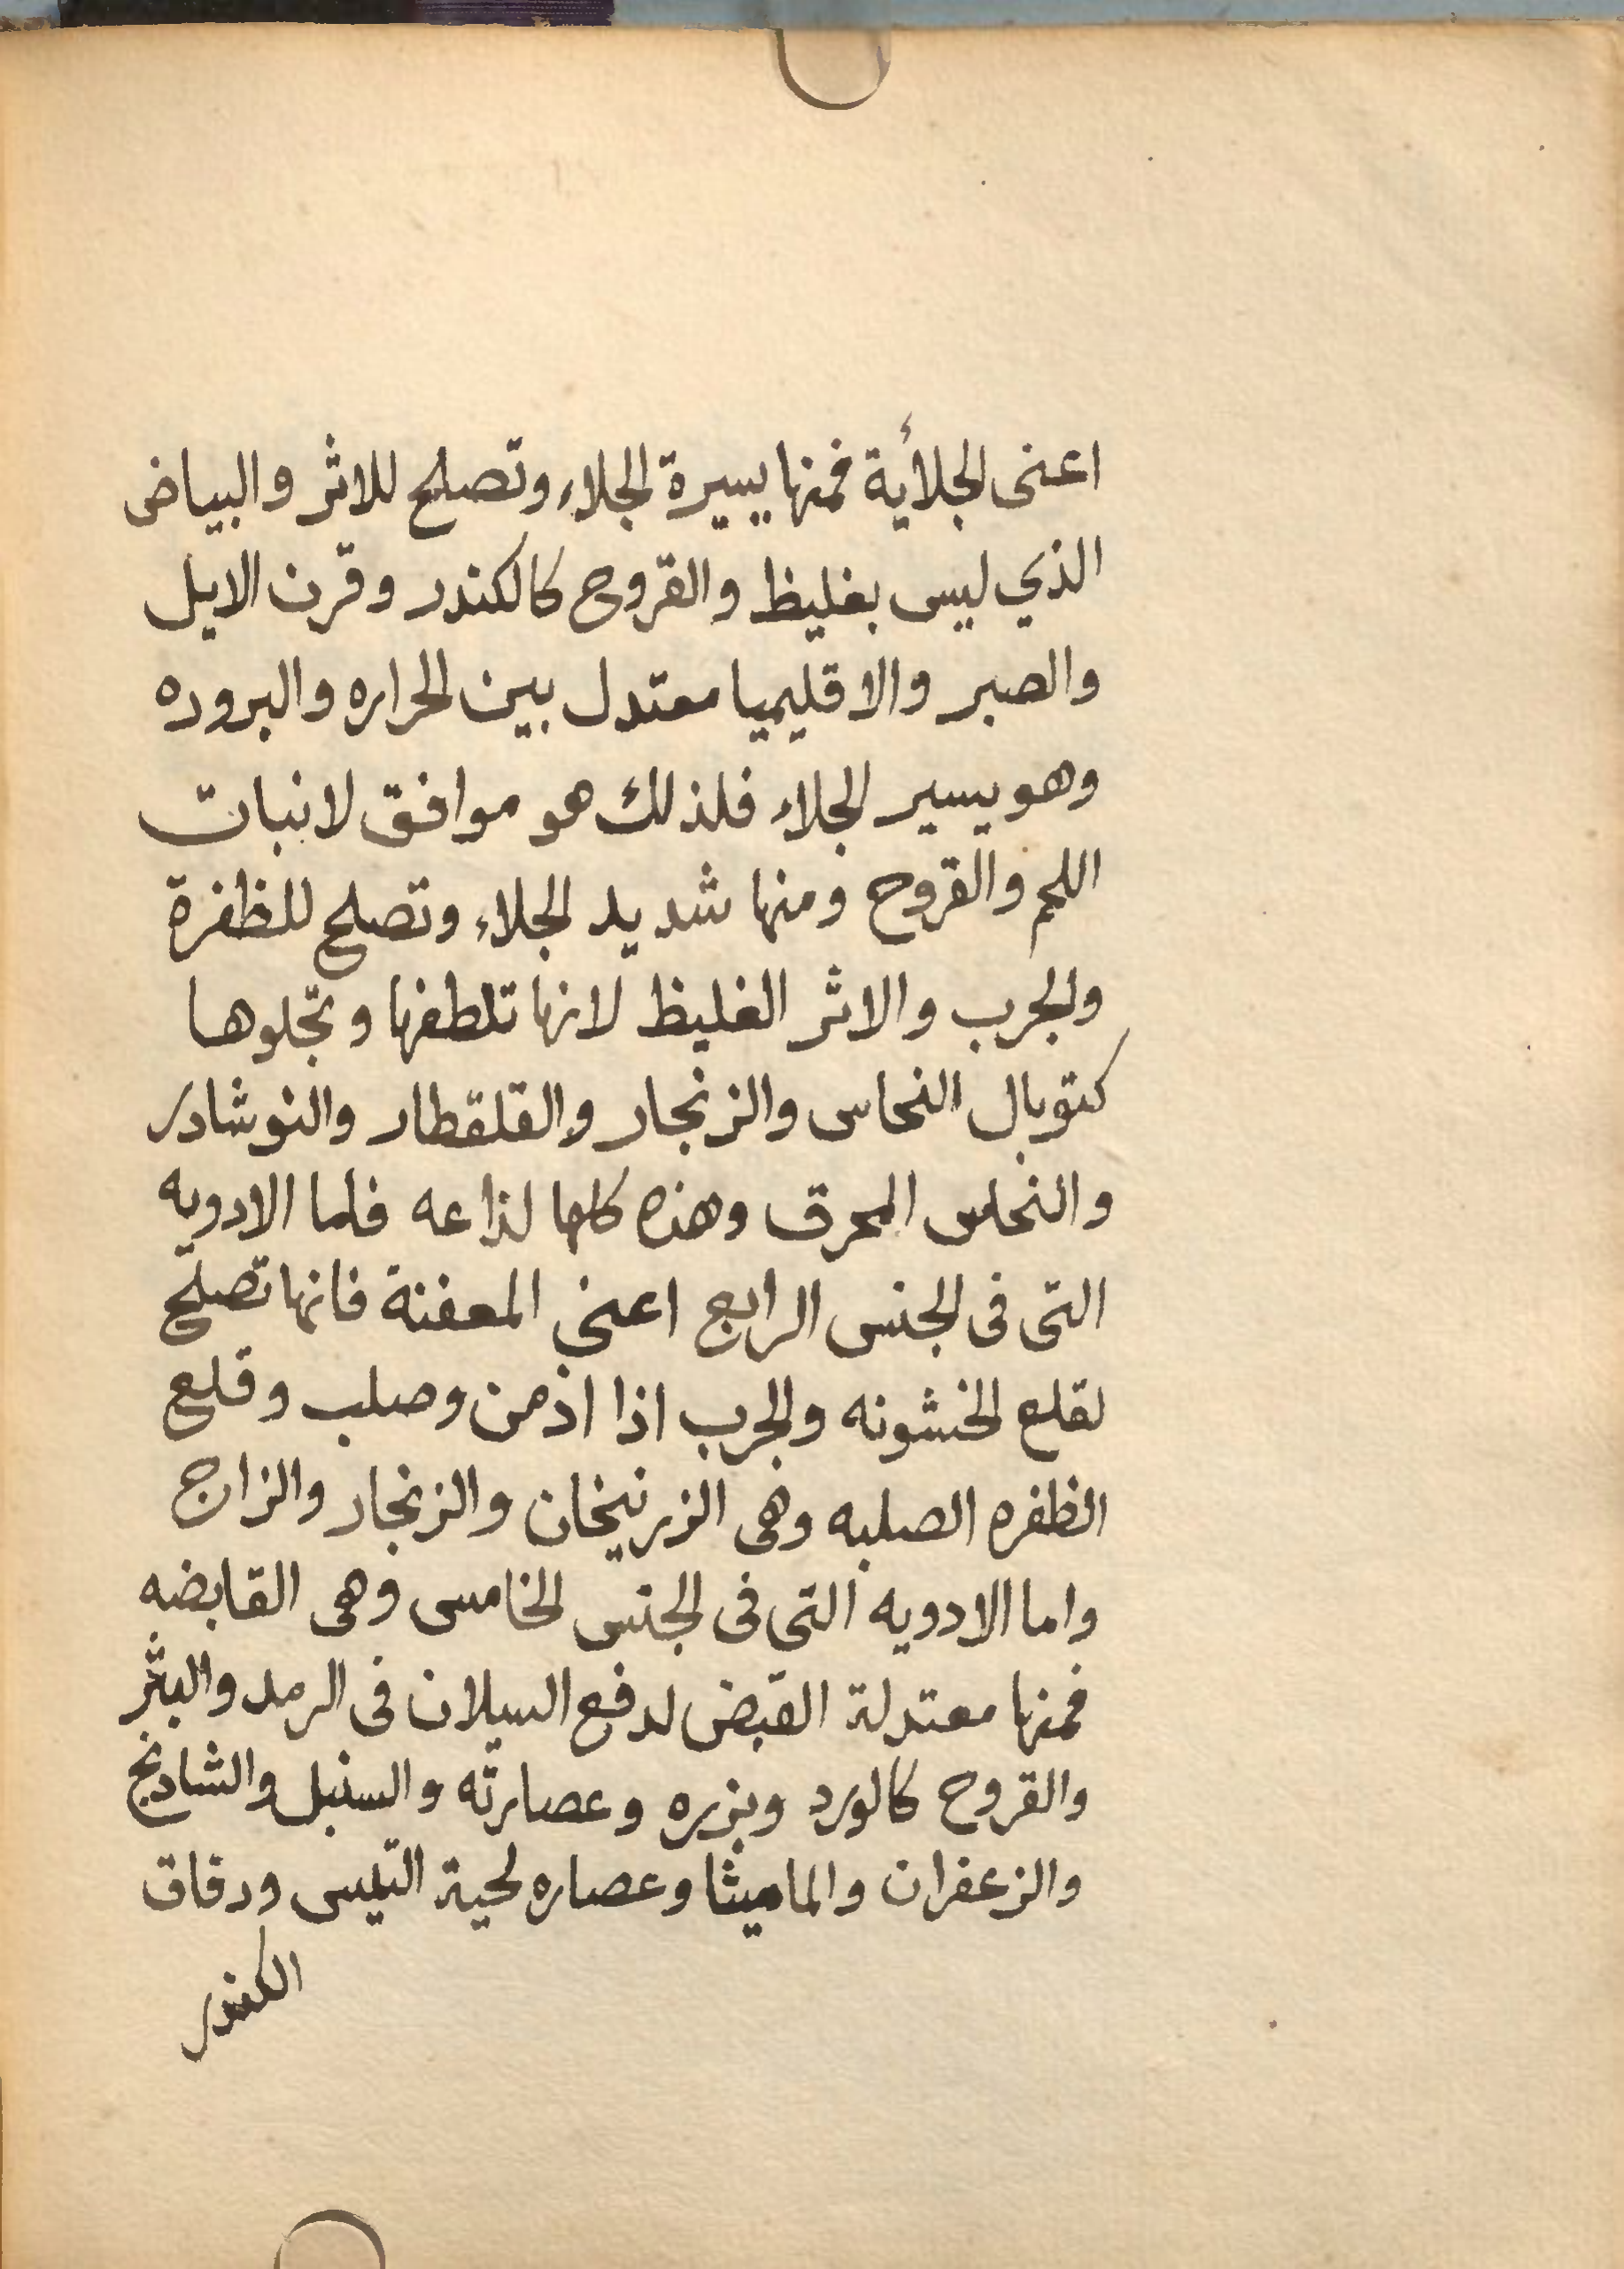 اعنى الجلأية فمنها يسيرة الجلاء وتصلح للاثر والبياض
الذي ليس بغليظ والقروح كالكندر وقرن الايل
والصبر والاقليميا معتدل بين الحراره والبروده
وهو يسير الجلاء فلذلك هو موافق لانبات
اللحم والقروح ومنها شديد الجلاء وتصلح للظفرة
والجرب والاثر الغليظ لانها تلطفها وتجلوها
كتوبال النحاس والزنجار والقلقطار والنوشادر
والنحاس المحرق وهذه كلها لذاعه فاما الادويه
التى فى الجنس الرابع اعني المعفنة فانها تصلح
لقلع الخشونه والجرب اذا اذمن وصلب وقلع
الظفره الصلبه وهى الزرنيخان والزنجار والزاج
واما الادويه التى فى الجنس الخامس وهى القابضه
فمنها معتدلة القبض لدفع السيلان فى الرمد والبثر
والقروح كالورد وبزره وعصارته والسنبل والشادنج
والزعفران والماميثا وعصاره لحية التيس ودقاق
الكندر